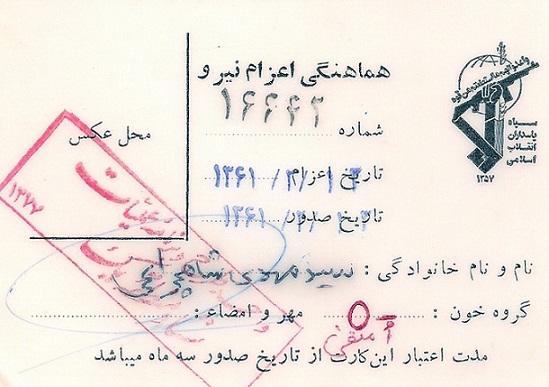 هماهنگی اعزام نیرو
شماره ۱۶۶۶۲
تاریخ اعزام ۱۳۶۱/۲/۱۳
تاریخ صدور ۱۳۶۱/۲/۱۳
محل عکس
سپاه
پاسداران
انقلاب
اسلامی
۱۳۵۷
نام و نام خانوادگی : سید مهدی شاهچراغی
گروه خون : O
أ منفی
مهر و امضاء :
مدت اعتبار این کارت از تاریخ صدور سه ماه میباشد